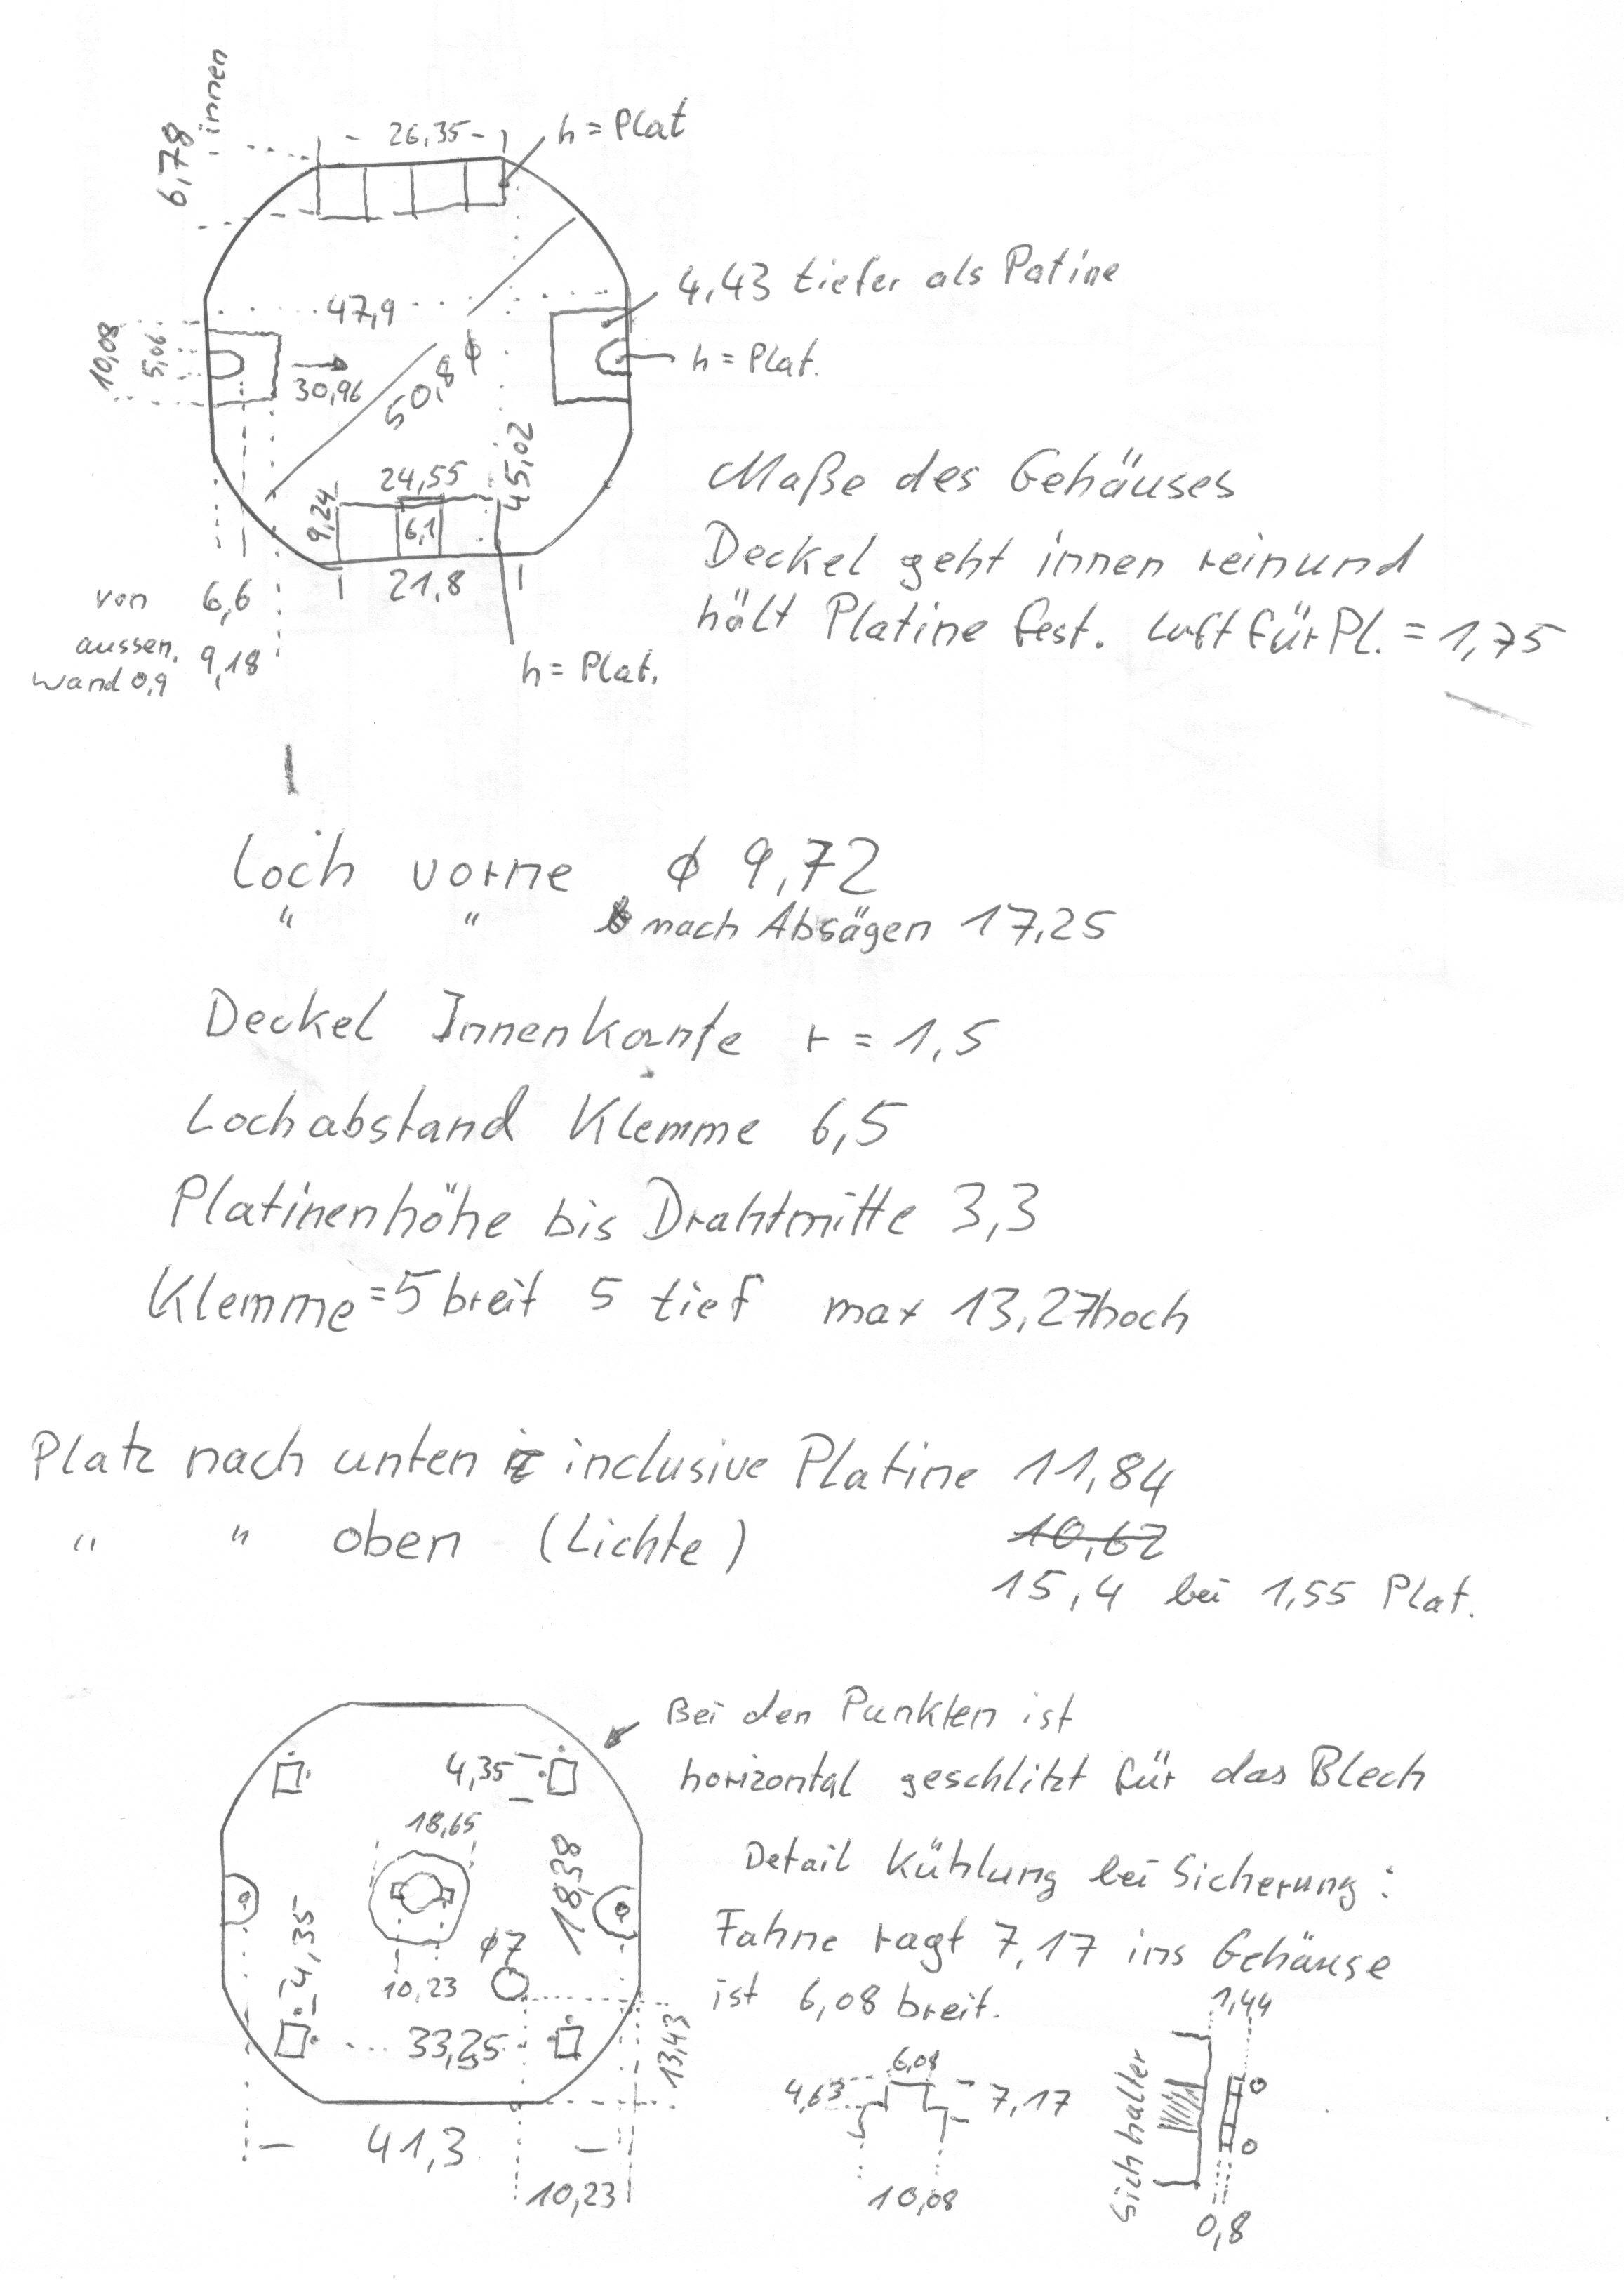 6,78 innen
26,35
h = Plat
4,43 tiefer als Patine
47,9
10,08
5,06
30,96
50,8 ϕ
h = Plat.
45,02
24,55
9,24
6,1
21,8
Maße des Gehäuses
Deckel geht innen rein und
hält Platine fest. Luft für Pl. = 1,75
von 6,6
aussen. 9,18
Wand 0,9
h = Plat.
Loch vorne ϕ 9,72
" " nach Absägen 17,25
Deckel Innenkante r = 1,5
Lochabstand Klemme 6,5
Platinenhöhe bis Drahtmitte 3,3
Klemme = 5 breit 5 tief max 13,27 hoch
Platz nach unten inclusive Platine 11,84
" " oben (Lichte) 10,62
15,4 bei 1,55 Plat.
Bei den Punkten ist
horizontal geschlitzt für das Blech
4,35
18,65
18,38
4,35
ϕ7
10,23
33,25
13,43
41,3
10,23
Detail Kühlung bei Sicherung:
Fahne ragt 7,17 ins Gehäuse
ist 6,08 breit.
6,08
4,63
7,17
10,08
1,44
Sichhalter
0,8